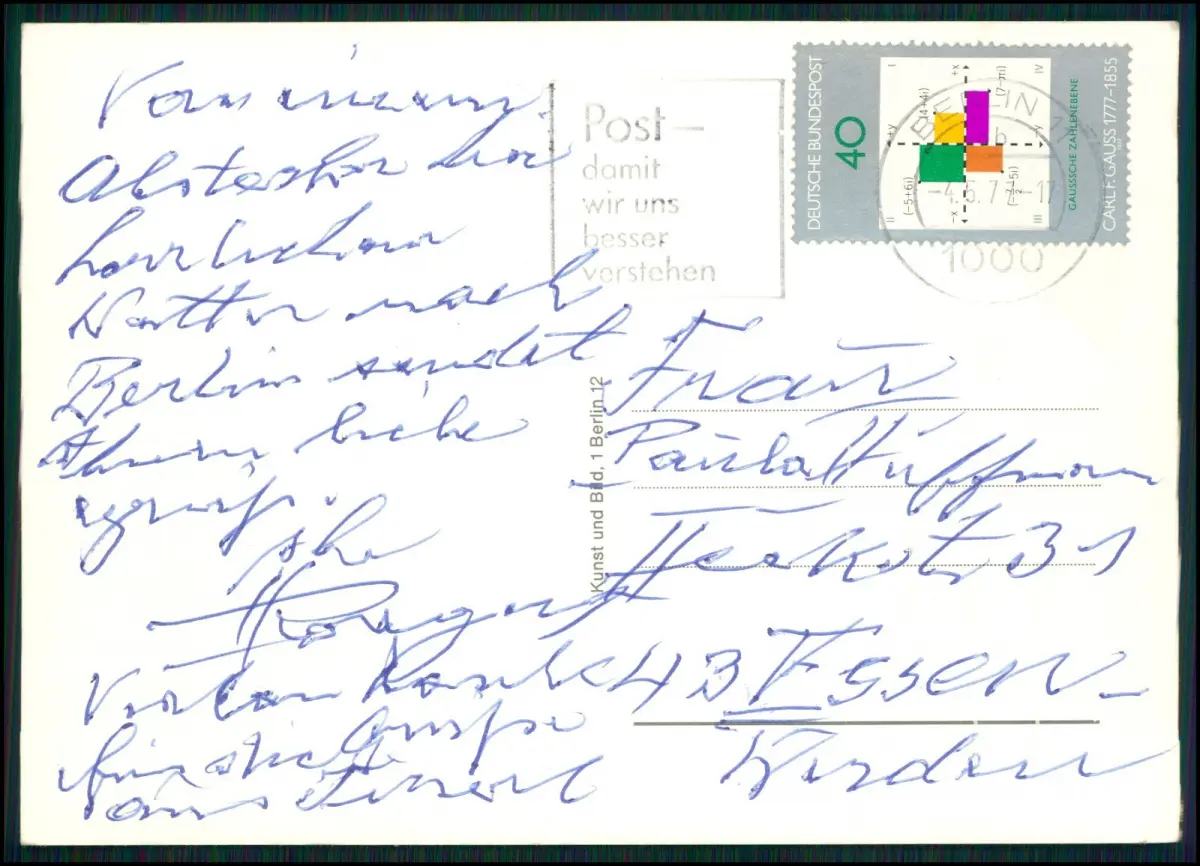 Von einem
Abstecher bei
herrlichem
Wetter nach
Berlin sendet
Ihnen liebe
Ihr
Vielen Dank
für die Grüße
aus Tirol
Post –
damit
wir uns
besser
verstehen
DEUTSCHE BUNDESPOST
40
I
II
III
IV
+x
-x
+y
-y
(4+4i)
(-5+6i)
GAUSSSCHE ZAHLENEBENE
CARL F. GAUSS 1777–1855
BERLIN 11
b
-4.6.77-17
1000
Kunst und Bild, 1 Berlin 12
Frau
Paula Hüffmann
31
43 ESSEN-
Werden